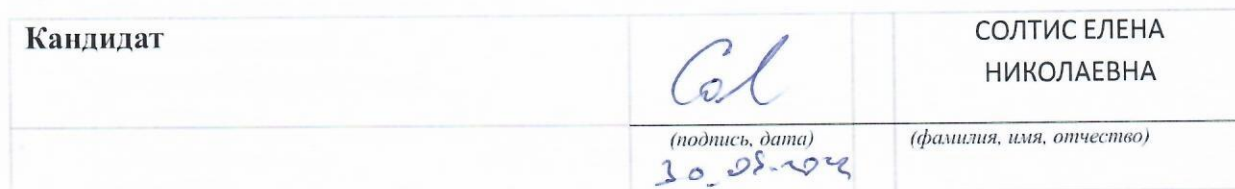 Кандидат
СОЛТИС ЕЛЕНА
НИКОЛАЕВНА
(подпись, дата)
(фамилия, имя, отчество)